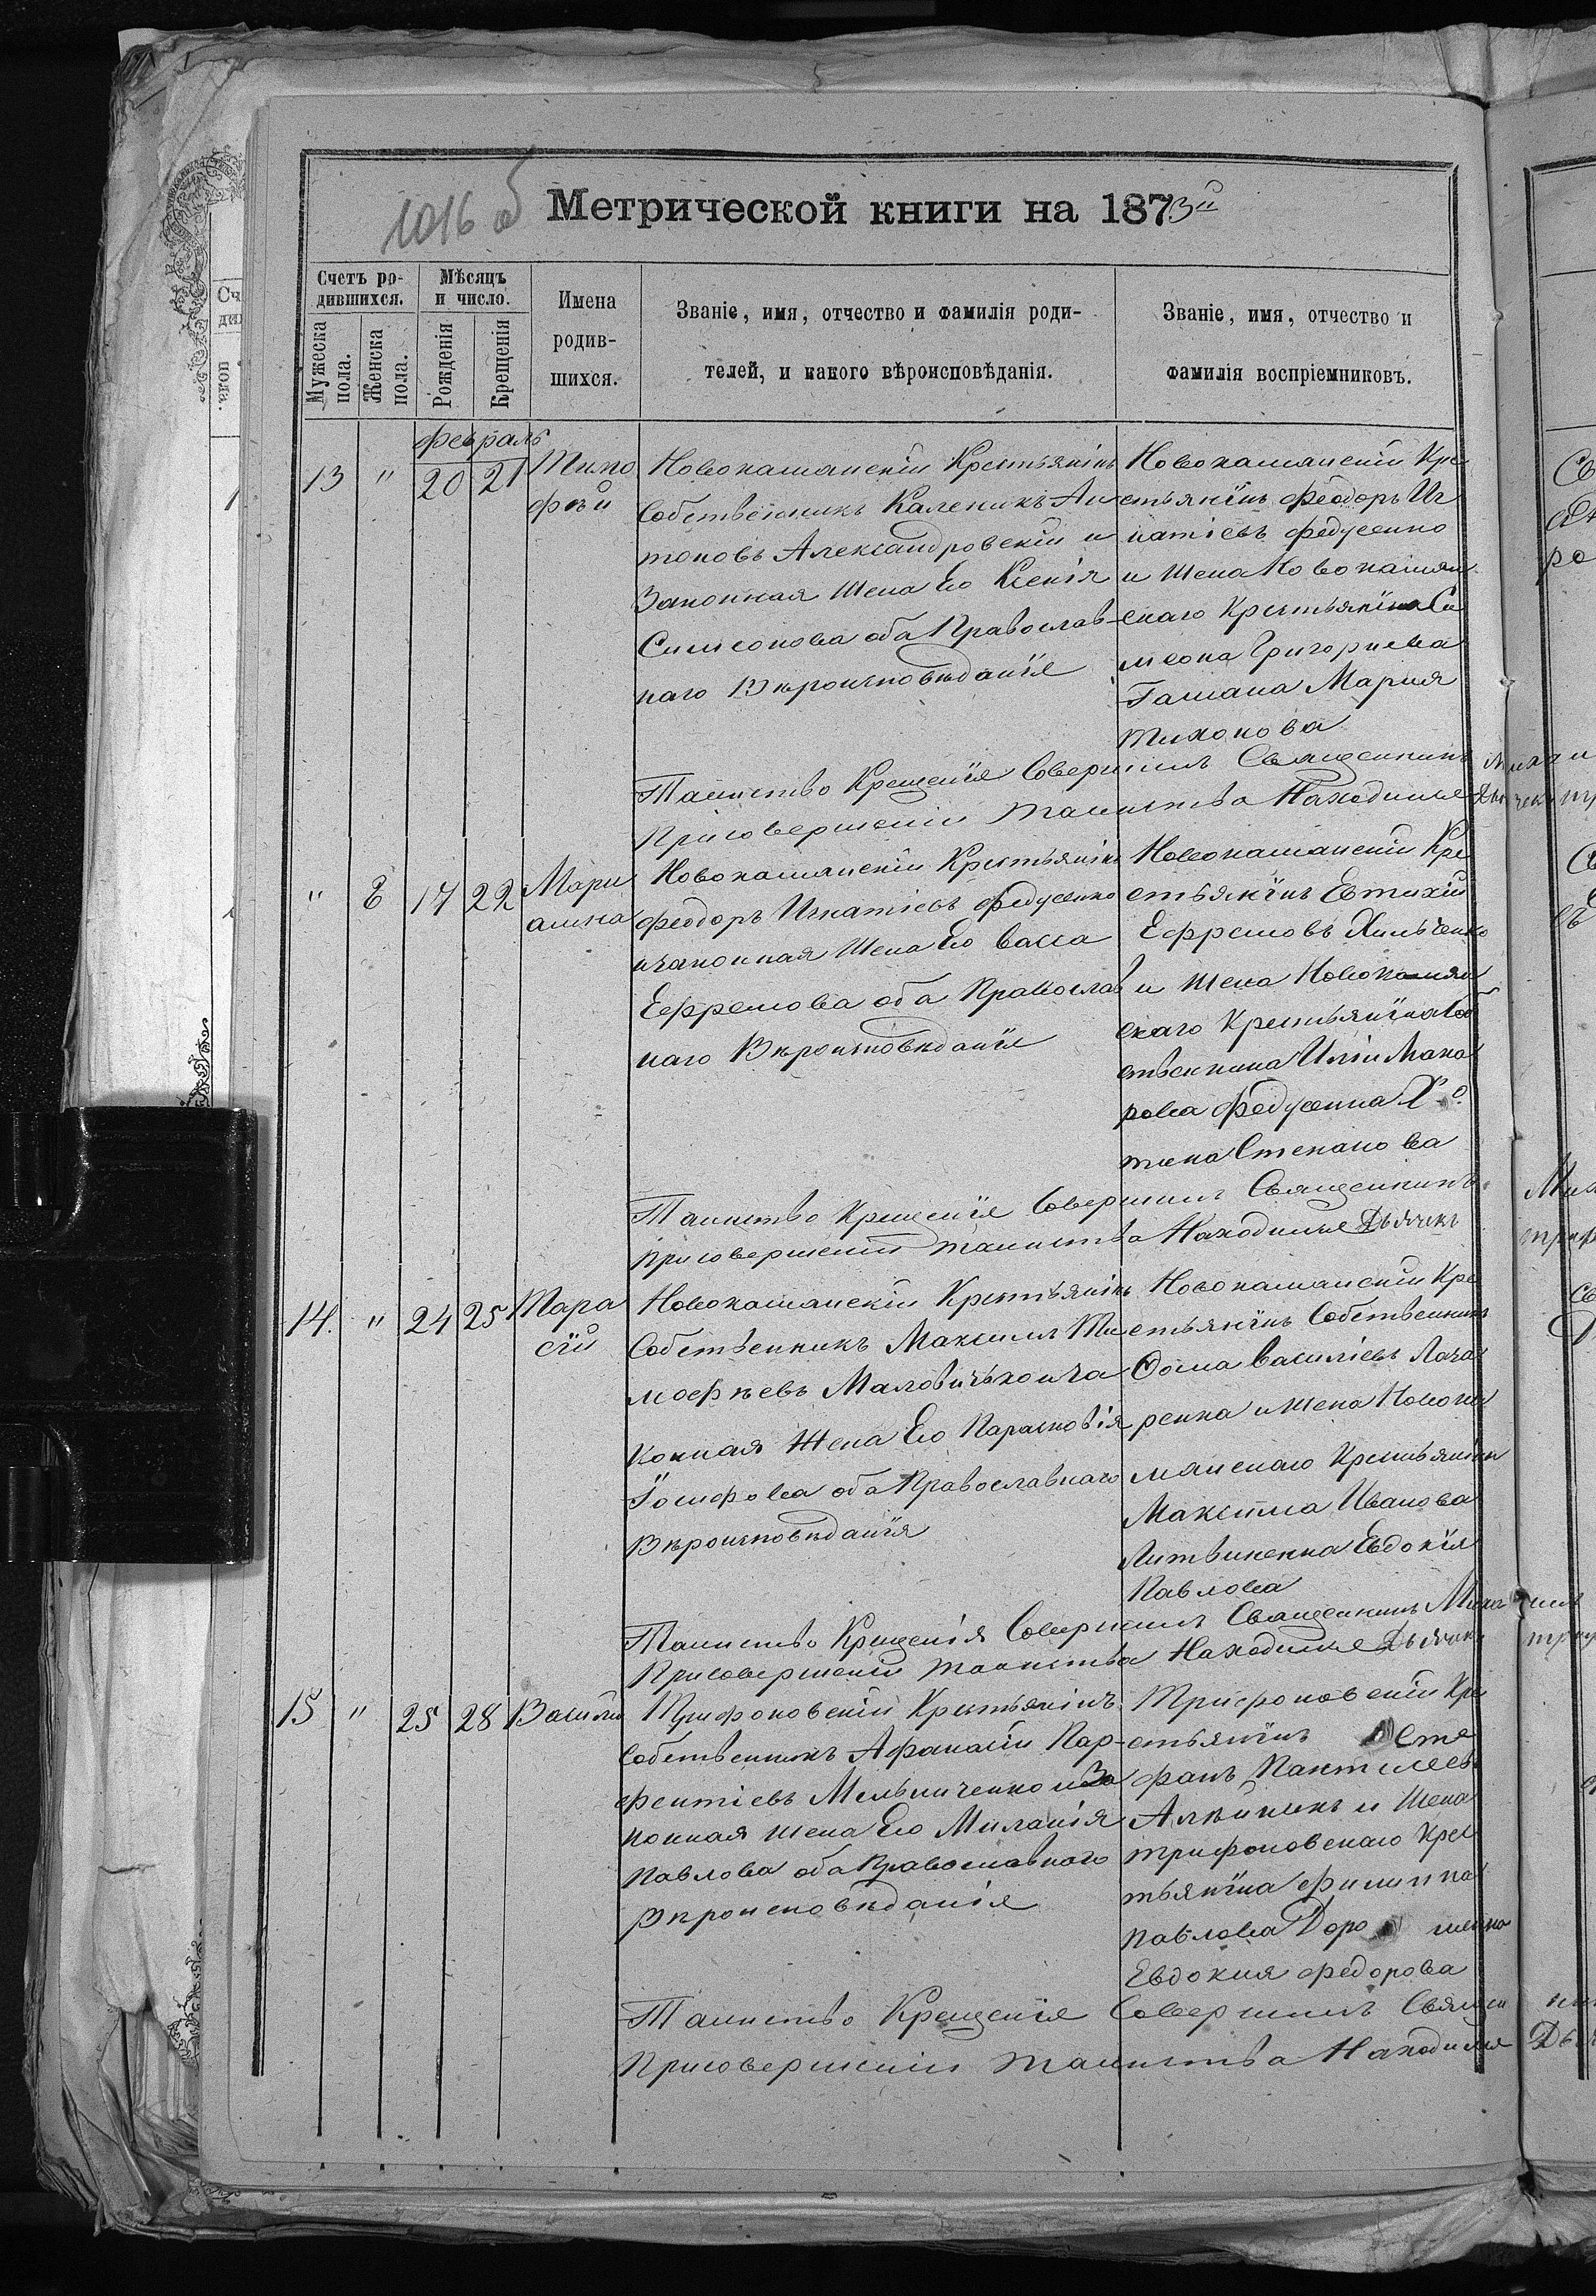 1016 об
Метрической книги на 1873й
Счетъ родившихся.
Мѣсяцъ и число.
Мужеска пола.
Женска пола.
Рожденія
Крещенія
Имена
родив-
шихся.
Званіе, имя, отчество и фамилія роди-
телей, и какого вѣроисповѣданія.
Званіе, имя, отчество и
фамилія воспріемниковъ.
февраль
13 " 20 21
Тимо
фѣй
Новокаманскій Крестьянінъ
Собственникъ Каленикъ Ан
тоновъ Александровскій и
Законная жена Его Ксенія
Симеонова оба Православ-
наго Вѣроисповѣданія
Новокаманскій Кре
стьянінъ Феодоръ Иг
натіевъ Федусенко
и жена Новокаман
скаго Крестьянина Си
меона Григорьева
Гамана Мария
Тихонова
Таинство Крещенія Совершилъ Священникъ
При совершеніи таинства Находился
" 8 17 22
Мари
амна
Новокаманскій Крестьянінъ
Феодоръ Игнатіевъ Федусенко
и законная Жена Его Васса
Ефремова оба Православ
наго Вѣроисповѣданія
Новокаманскій Кре
стьянінъ Евтихій
Ефремовъ Хильченко
и жена Новокаман
скаго Крестьянина Соб
ственника Макa
рова Федусенка
Степанова
Таинство Крещенія Совершилъ Священникъ
При совершеніи таинства Находился Дьячекъ
14. " 24 25
Тара
сій
Новокаманскій Крестьянінъ
Собственникъ Максимъ Ти
мофѣевъ Маловичько и за
конная Жена Его Парасковія
Іосифова оба Православнаго
Вѣроисповѣданія
Новокаманскій Кре
стьянінъ Собственникъ
Фома Василіевъ
ренко и жена Новока
манскаго Крестьянина
Максима Иванова
Литвиненка Евдокія
Павлова
Таинство Крещенія Совершилъ Священникъ
При совершеніи таинства Находился Дьячекъ
15 " 25 28
Василій
Трифоновскій Крестьянінъ
Собственникъ Афанасій Пар-
фентіевъ Мельниченко и За
конная жена Его Миланія
Павлова оба Православного
Вѣроисповѣданія
Трифоновскій Кре
стьянінъ Сте
фанъ
и Жена
Трифоновскаго Крес
тьянина Филиппа
Павлова
Евдокия Федорова
Таинство Крещенія Совершилъ Священ
При совершеніи таинства Находился